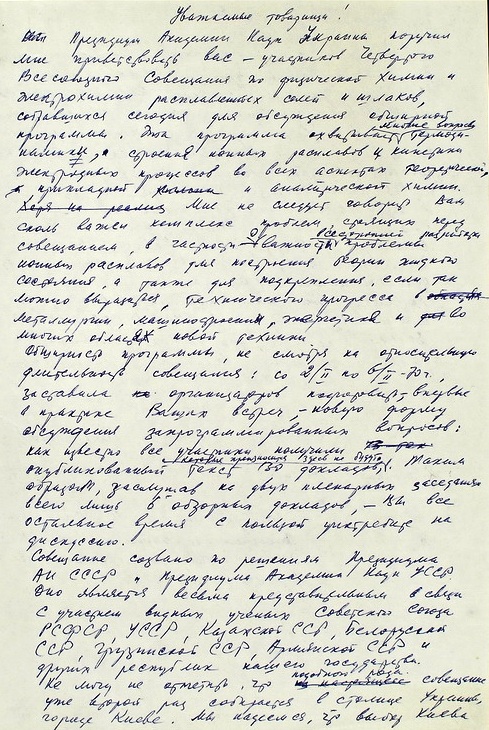 Уважаемые товарищи!
Президиум Академии Наук Украины поручил
мне приветствовать вас – участников Четвертого
Всесоюзного Совещания по физической химии и
электрохимии расплавленных солей и шлаков,
собравшихся сегодня для обсуждения обширной
программы. Эта программа охватывает многие вопросы термоди-
намики, строения ионных расплавов и кинетики
электродных процессов во всех аспектах теоретической,
прикладной и аналитической химии.
Мне не следует говорить Вам
сколь важен комплекс проблем стоящих перед
совещанием, в частности о важности всесторонней разработки проблемы
ионных расплавов для построения теории жидкого
состояния, а также для подкрепления, если так
можно выразиться, технического прогресса в
металлургии, машиностроении, энергетике и во
многих областях новой техники.
Обширность программы, не смотря на относительную
длительность совещания: со 2/II по 6/II-70г.,
заставила организаторов подготовить – впервые
в практике Ваших встреч, – новую форму
обсуждения запрограммированных вопросов:
как известно все участники получили
опубликованный текст 30 докладов, которые произносить здесь не будут. Таким
образом, заслушав на двух пленарных заседаниях
всего лишь 6 обзорных докладов, – Вы все
остальное время с пользой употребите на
дискуссию.
Совещание созвано по решениям Президиума
АН СССР и Президиума Академии Наук УССР.
Оно является весьма представительным в связи
с участием видных ученых Советского Союза
РСФСР, УССР, Казахской ССР, Белорусской
ССР, Грузинской ССР, Армянской ССР и
других республик нашего государства.
Не могу не отметить, что подобного рода совещание
уже второй раз собирается в столице Украины,
городе Киеве. Мы надеемся, что выбор Киева